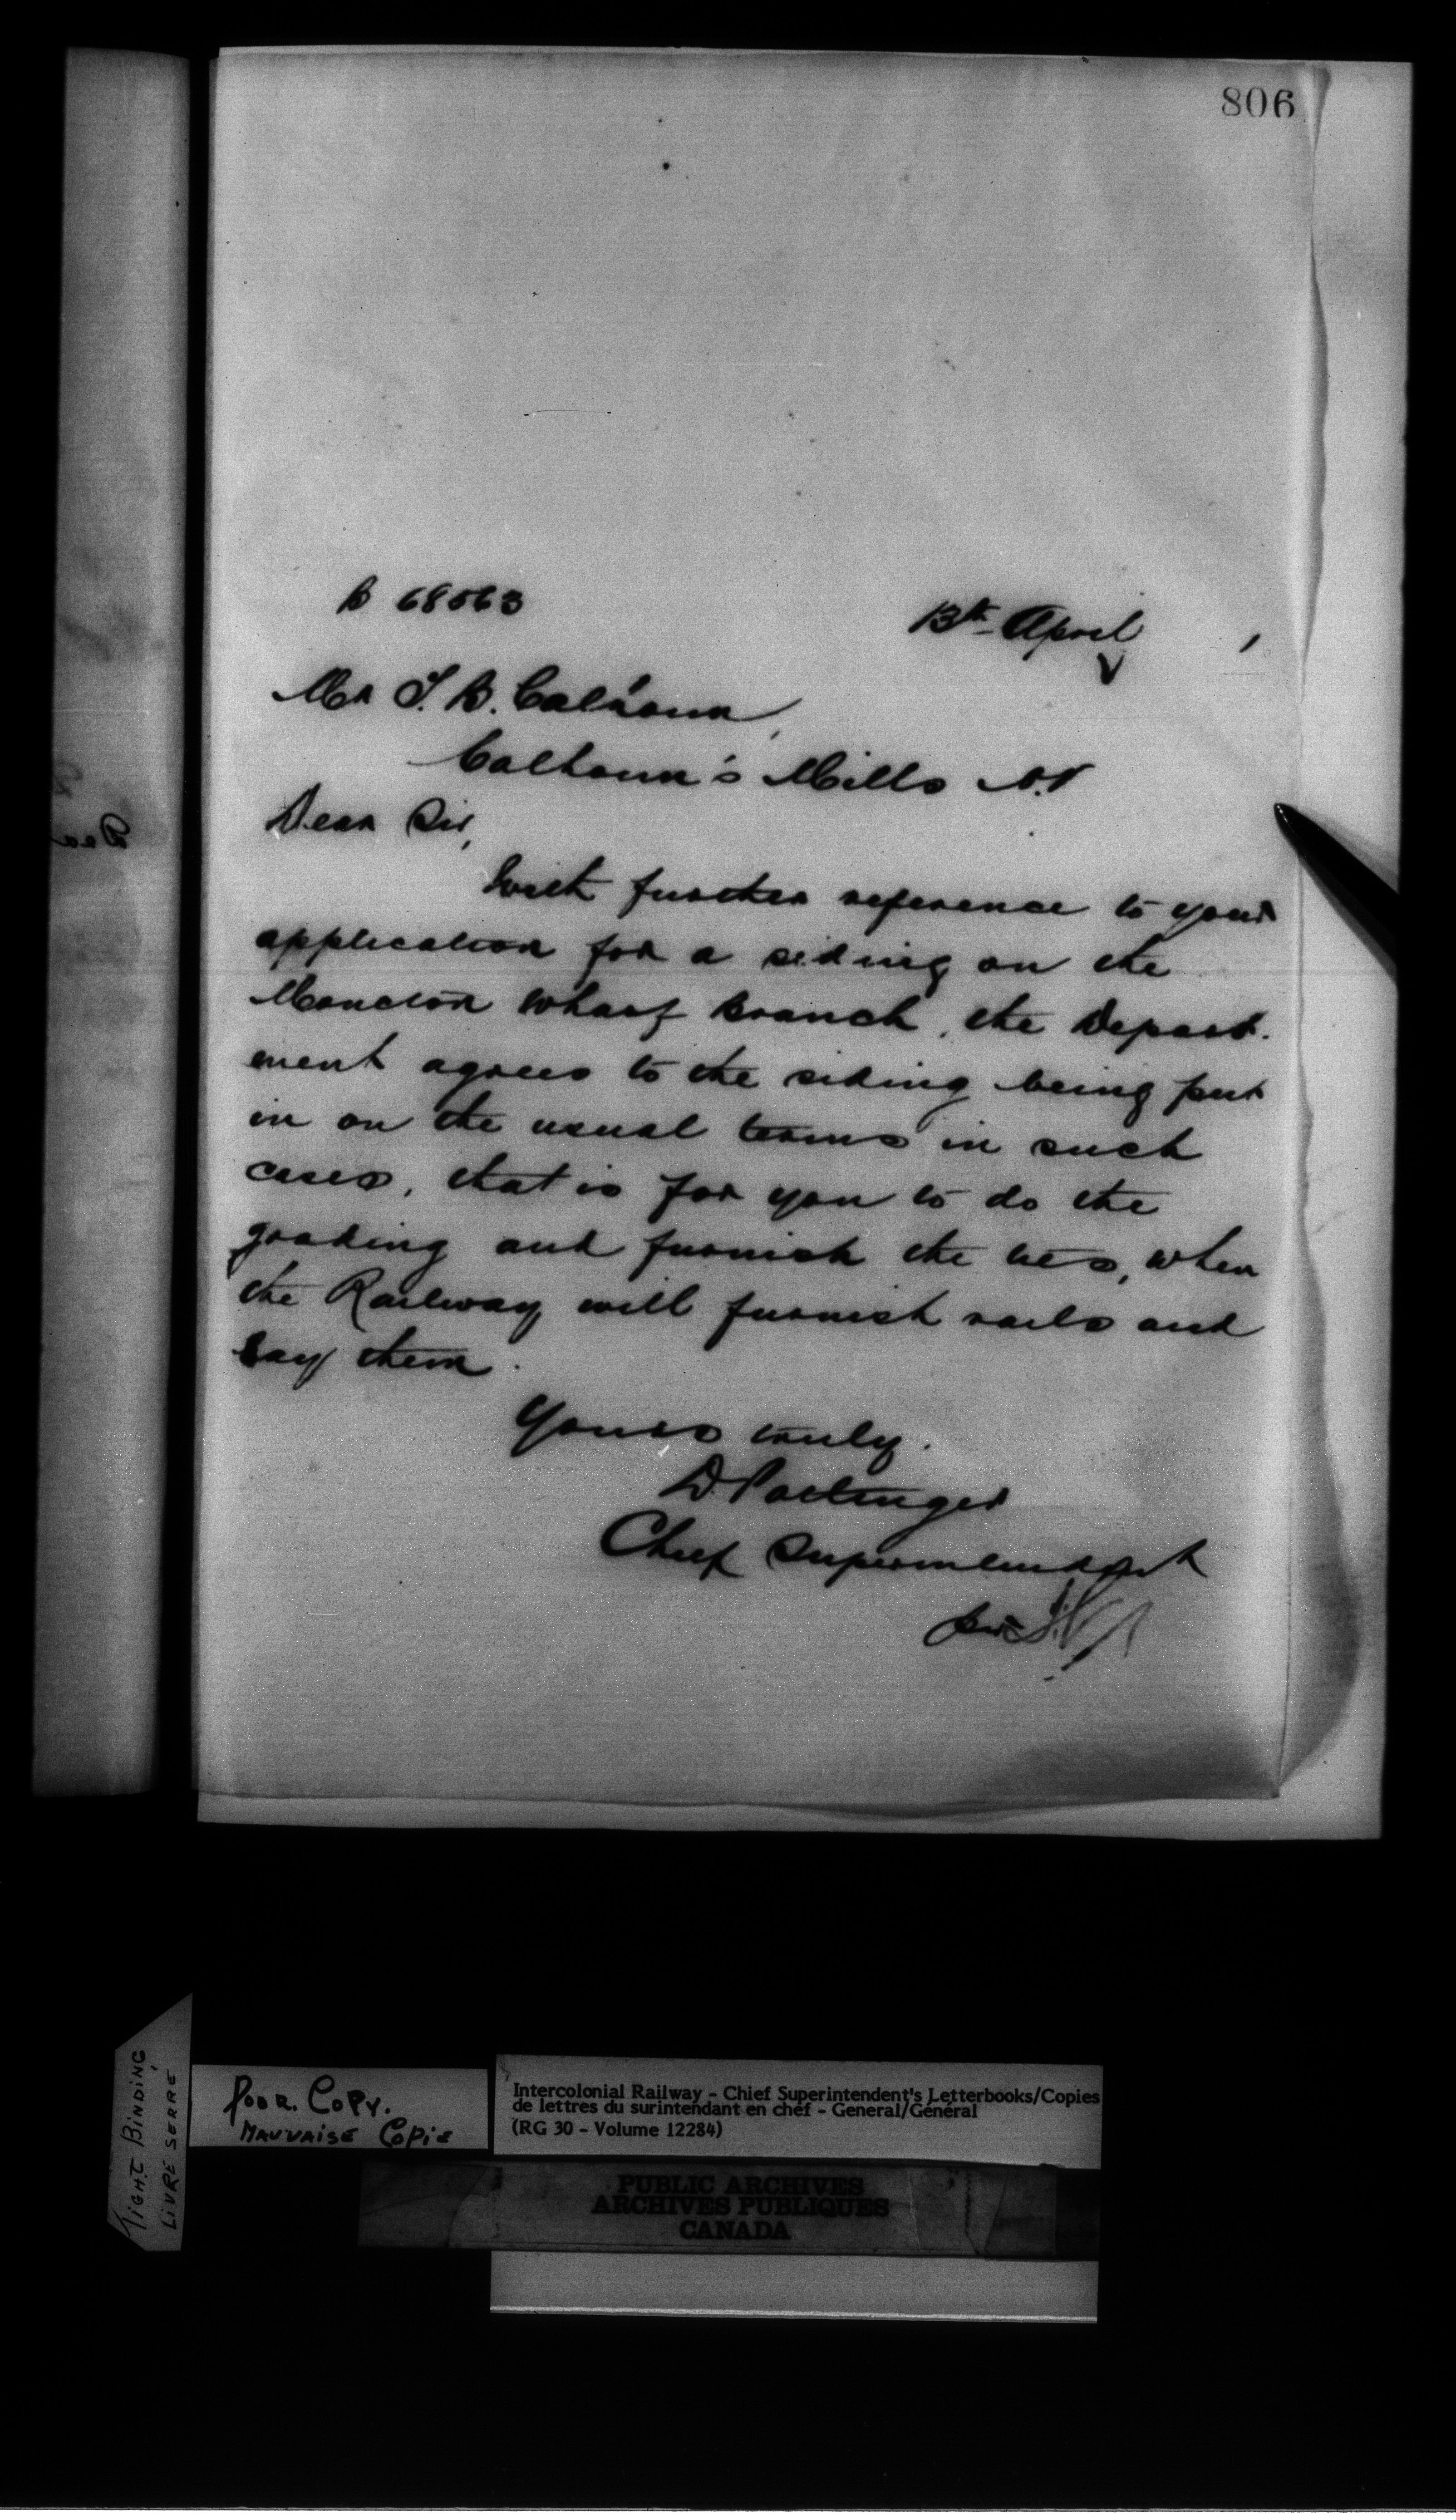 806
B 68563
13th April
Mr T. B. Calhoun,
Calhoun's Mills N.B
Dear Sir,
With further reference to your
application for a siding on the
Moncton Wharf Branch, the Depart-
ment agrees to the siding being put
in on the usual terms in such
cases, that is for you to do the
grading and furnish the ties, when
the Railway will furnish rails and
lay them.
Yours truly.
D. Pottinger
Chief Superintendent
per
TIGHT BINDING
LIVRE SERRÉ
POOR COPY.
MAUVAISE COPIE
Intercolonial Railway – Chief Superintendent's Letterbooks/Copies
de lettres du surintendant en chef – General/Général
(RG 30 – Volume 12284)
PUBLIC ARCHIVES
ARCHIVES PUBLIQUES
CANADA